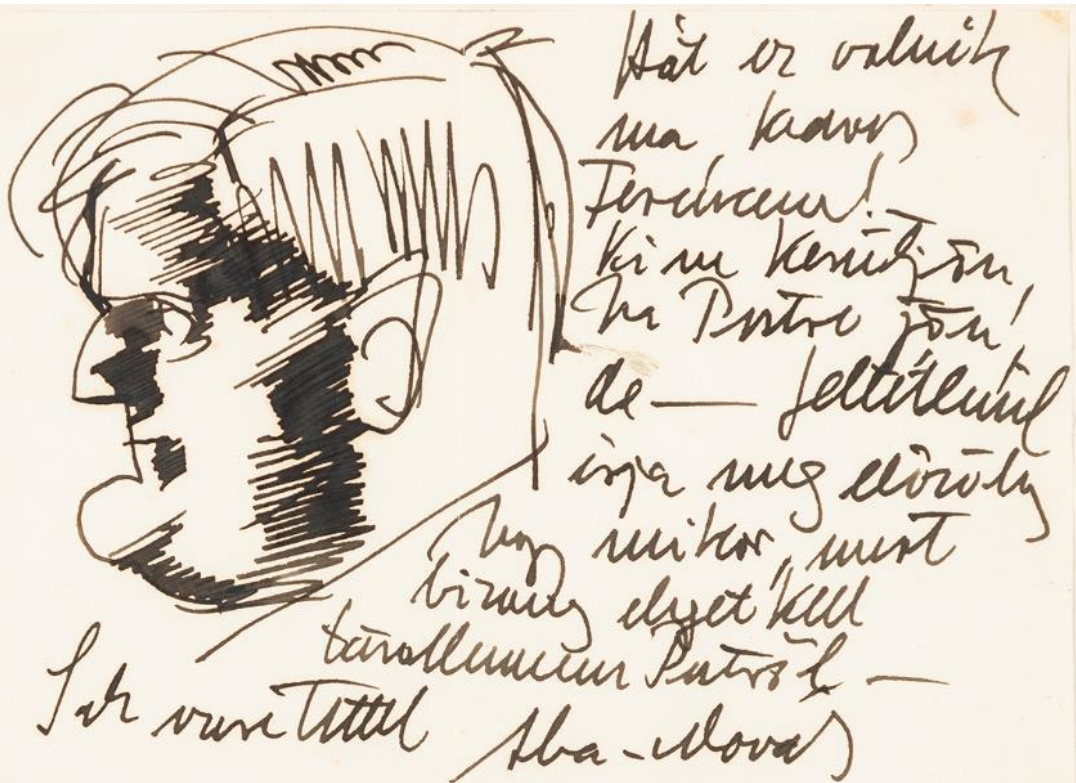 Hát ez volnék
ma, kedves
Ferencem!
Ki ne kerüljön,
ha Pestre jön,
de — feltétlenül
írja meg előzőleg
hogy mikor, mert
bizony eleget kell
távollennem Pestről —
Sok szeretettel
Aba-Novák